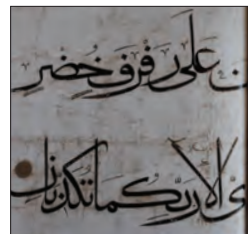 ن على رفرف خضر
ى الاء ربكما تكذبان